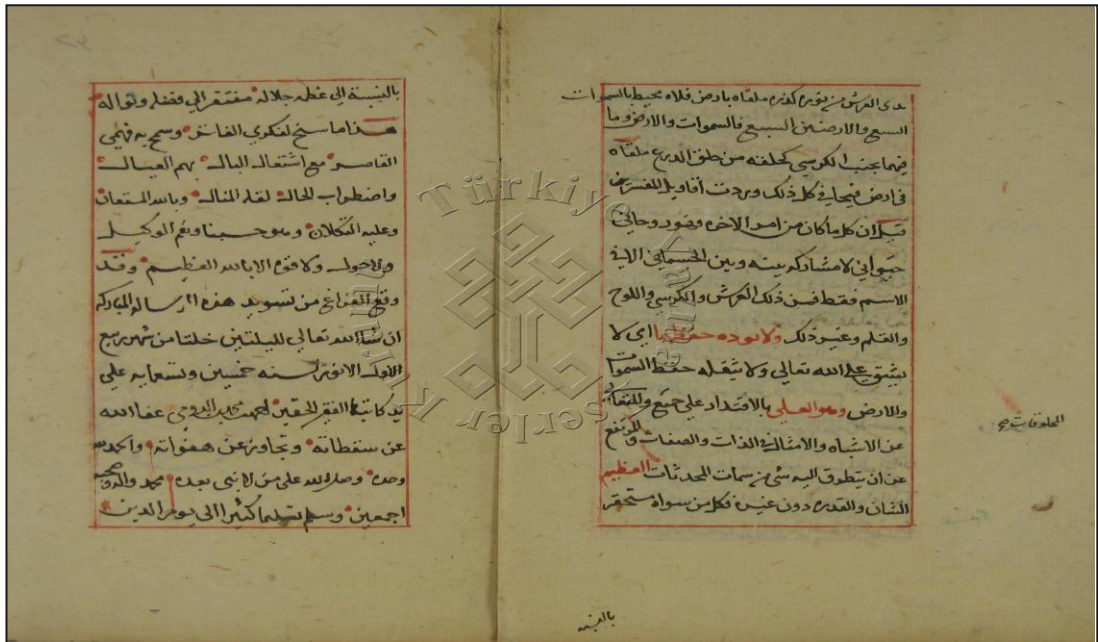 يدى العرش من نوره كذره ملقاه بارض فلاه محيط بالسموات
السبع والارضين السبع فالسموات والارض وما
فيهما بجنب الكرسي كحلقه من حلق الدرع ملقاه
في ارض فيحا في كل ذلك وردت أقاويل المفسرين
قيل ان كل ما كان من امر الاخره وجود روحاني
حيواني لا مشاركه بينه وبين الجسماني الا في
الاسم فقط فمن ذلك العرش والكرسي واللوح
والقلم وغير ذلك ولا يوده حفظهما اي لا
يشق على الله تعالى ولا يثقله حفظ السموات
والارض وهو العلي بالاقتداد على جميع والمتعالي
المخلوقات صح
عن الاشباه والامثال في الذات والصفات والمرتفع
عن ان يتطرق اليه شي من سمات المحدثات العظيم
الشان والقدره دون غيره فكل من سواه مستحقر
بالنسبة
بالنسبة الى عظمه جلاله مفتقر الى فضله ونواله
هذا ما سنح لفكري الفاتر وسمح به فهمي
القاصر مع اشتغال البال بهم العيال
واضطراب الحال لقلة المنال وبالله المستعان
وعليه التكلان وهو حسبنا ونعم الوكيل
ولا حول ولا قوه الا بالله العظيم وقد
وقع الفراغ من تسويد هذه الرسالة المباركه
ان شاالله تعالى لليلتين خلتا من شهر ربيع
الاول الانور لسنه خمسين وتسعمايه على
يد كاتبها الفقير الحقير محمد عفا الله
عن سقطاته وتجاوز عن هفواته والحمد لله
وحده وصلى الله على من لا نبي بعده محمد واله وصحبه
اجمعين وسلم تسليما كثيرا الى يوم الدين
Türkiye Yazma Eserler Kurumu